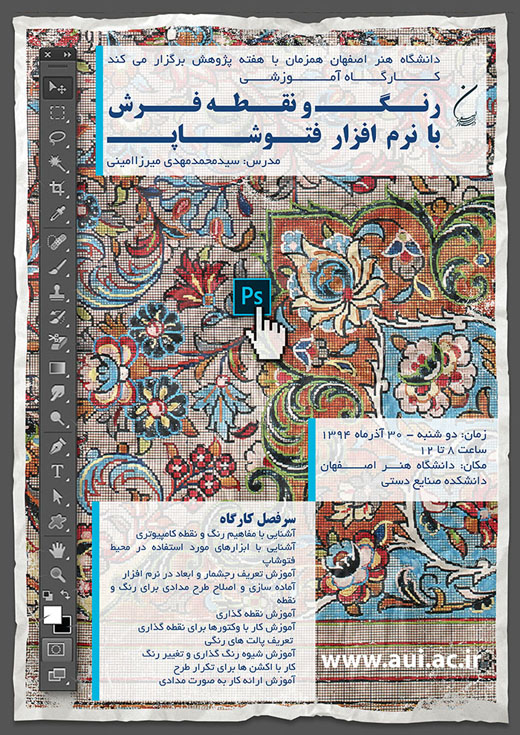 دانشگاه هنر اصفهان همزمان با هفته پژوهش برگزار می کند
کارگاه آموزشی
رنگ و نقطه فرش
با نرم افزار فتوشاپ
مدرس: سیدمحمدمهدی میرزاامینی
Ps
زمان: دو شنبه - ۳۰ آذرماه ۱۳۹۴
ساعت ۸ تا ۱۲
مکان: دانشگاه هنر اصفهان
دانشکده صنایع دستی
سرفصل کارگاه
آشنایی با مفاهیم رنگ و نقطه کامپیوتری
آشنایی با ابزارهای مورد استفاده در محیط
فتوشاپ
آموزش تعریف رجشمار و ابعاد در نرم افزار
آماده سازی و اصلاح طرح مدادی برای رنگ و
نقطه
آموزش نقطه گذاری
آموزش کار با وکتورها برای نقطه گذاری
تعریف پالت های رنگی
آموزش شیوه رنگ گذاری و تغییر رنگ
کار با اکشن ها برای تکرار طرح
آموزش ارائه کار به صورت مدادی
www.aui.ac.ir